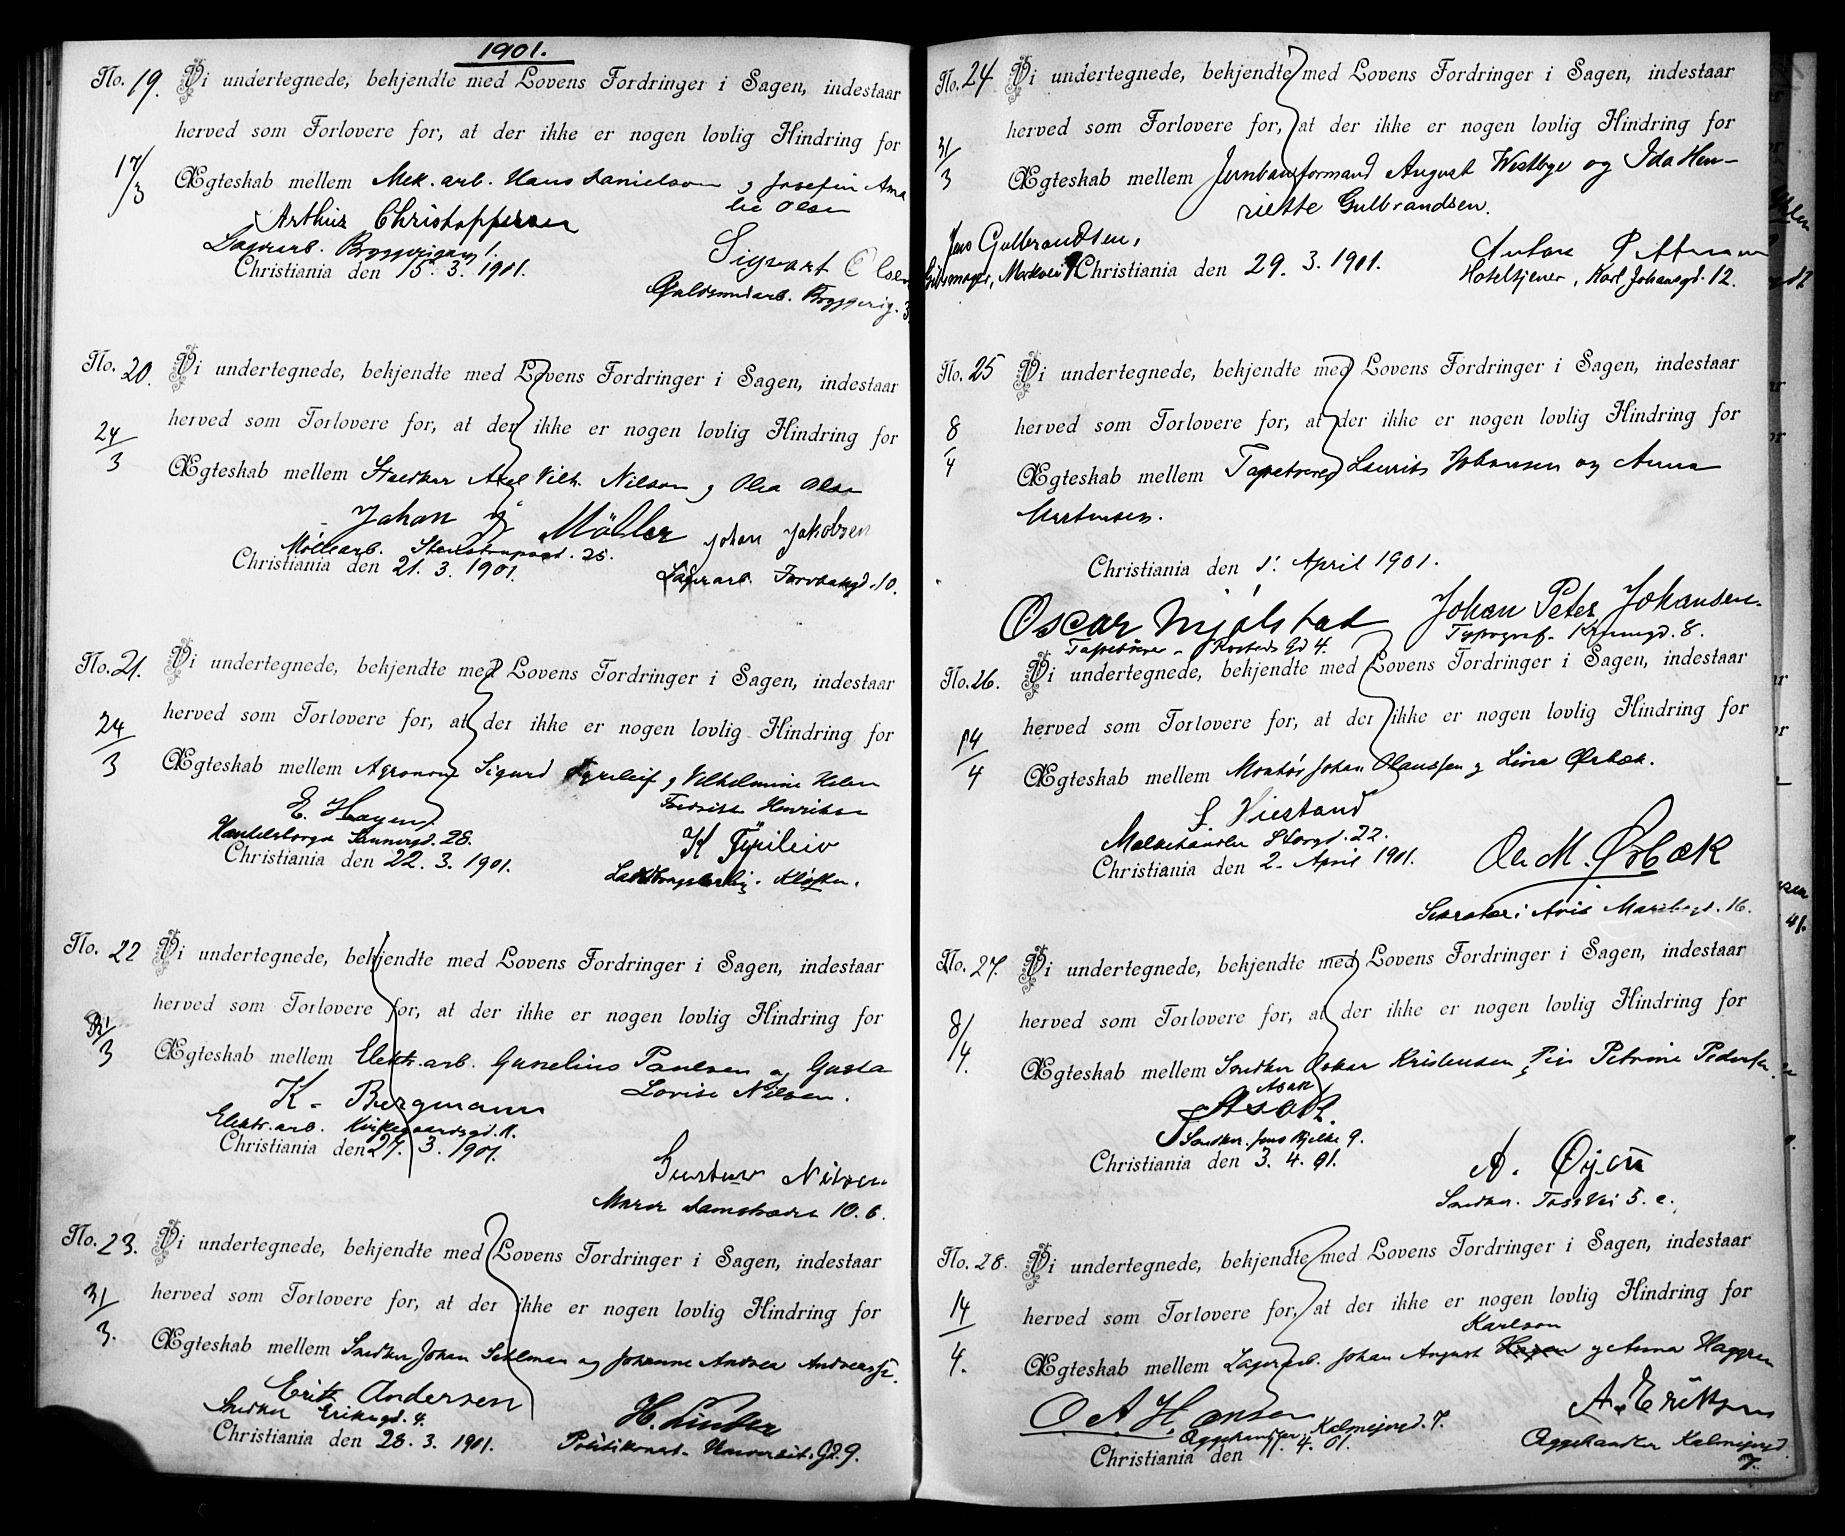 1901.
No. 19. Vi undertegnede, bekjendte med Lovens Fordringer i Sagen, indestaar
herved som Forlovere for, at der ikke er nogen lovlig Hindring for
17/3
Ægteskab mellem Mek. arb. Hans Danielsen og Josefin Ama
lie Olsen
Arthur Christoffersen
Lagerarb. Bryggerigang 1.
Sigvart Olsen
Christiania den 15. 3. 1901.
Guldsmedarb. Bryggerig. 3.
No. 20. Vi undertegnede, bekjendte med Lovens Fordringer i Sagen, indestaar
herved som Forlovere for, at der ikke er nogen lovlig Hindring for
24/3
Ægteskab mellem Axel Vilh. Nilsen og Olea Olsen
Johan Möller Johan Jakobsen
Møllearb. Stenstrupsgd. 25.
Christiania den 21. 3. 1901.
Lagerarb. 10.
No. 21. Vi undertegnede, bekjendte med Lovens Fordringer i Sagen, indestaar
herved som Forlovere for, at der ikke er nogen lovlig Hindring for
24/3
Ægteskab mellem Agronom Sigurd Fyrileif og Vilhelmine Helene
Fredrikke Henriksen
E. Hagen
Handelsborger 28.
K Fyrileiv
Christiania den 22. 3. 1901.
Kløften.
No. 22 Vi undertegnede, bekjendte med Lovens Fordringer i Sagen, indestaar
herved som Forlovere for, at der ikke er nogen lovlig Hindring for
31/3
Ægteskab mellem Elektr. arb. Gunelius Paulsen og Gusta
Lovise Nilsen.
K. Bergmann
Elektr. arb. Kirkegaardsgd. 11.
Christiania den 27. 3. 1901.
Gustav Nilsen
Murer 10. b.
No. 23. Vi undertegnede, bekjendte med Lovens Fordringer i Sagen, indestaar
herved som Forlovere for, at der ikke er nogen lovlig Hindring for
31/3.
Ægteskab mellem Snedker Johan Sehlman og Johanne Andrea Andreassen.
Erik Andersen
Snedker Eriksgd. 4.
H. Linder
Christiania den 28. 3. 1901.
Politikonst. Universit. Gd 9.
No. 24 Vi undertegnede, bekjendte med Lovens Fordringer i Sagen, indestaar
herved som Forlovere for, at der ikke er nogen lovlig Hindring for
31/3
Ægteskab mellem Jernbaneformand August Westbye og Ida Hen-
riette Gulbrandsen.
Jens Gulbrandsen,
Markvei
Christiania den 29. 3. 1901.
Anton Pettersen
Hoteltjener, Karl Johansgd. 12.
No. 25 Vi undertegnede, bekjendte med Lovens Fordringer i Sagen, indestaar
herved som Forlovere for, at der ikke er nogen lovlig Hindring for
8/4
Ægteskab mellem Tapetserer Laurits Johansen og Anna
Martinsen.
Christiania den 1. April 1901.
Oscar Mjølstad Johan Peter Johansen.
Tapetserer - Rosteds Gd 4. Typograf. 8.
No. 26. Vi undertegnede, bekjendte med Lovens Fordringer i Sagen, indestaar
herved som Forlovere for, at der ikke er nogen lovlig Hindring for
14/4
Ægteskab mellem Montør Johan Olaussen og Lina Ørbæk.
S. Viestand
Melkehandler Storgd. 22.
Christiania den 2. April 1901.
Ole M. Ørbæk
Maribogd. 16.
No. 27. Vi undertegnede, bekjendte med Lovens Fordringer i Sagen, indestaar
herved som Forlovere for, at der ikke er nogen lovlig Hindring for
8/4.
Ægteskab mellem Snedker Oskar Kristensen og Petrine Pedersen.
Asak
Asak
Snedker. Jens Bjelke 9.
Christiania den 3. 4. 01.
A. Øyen
Snedker. Tøsevei 5. c.
No. 28. Vi undertegnede, bekjendte med Lovens Fordringer i Sagen, indestaar
herved som Forlovere for, at der ikke er nogen lovlig Hindring for
14/4.
Karlson
Ægteskab mellem Lagerarb. Johan August Hagen og Anna Haggren
O. A. Hansen
Æggehandler, Kalmejergd. 7.
A. Eriksen
Christiania den 11. 4. 01.
Æggehandler Kalmejergd
7.